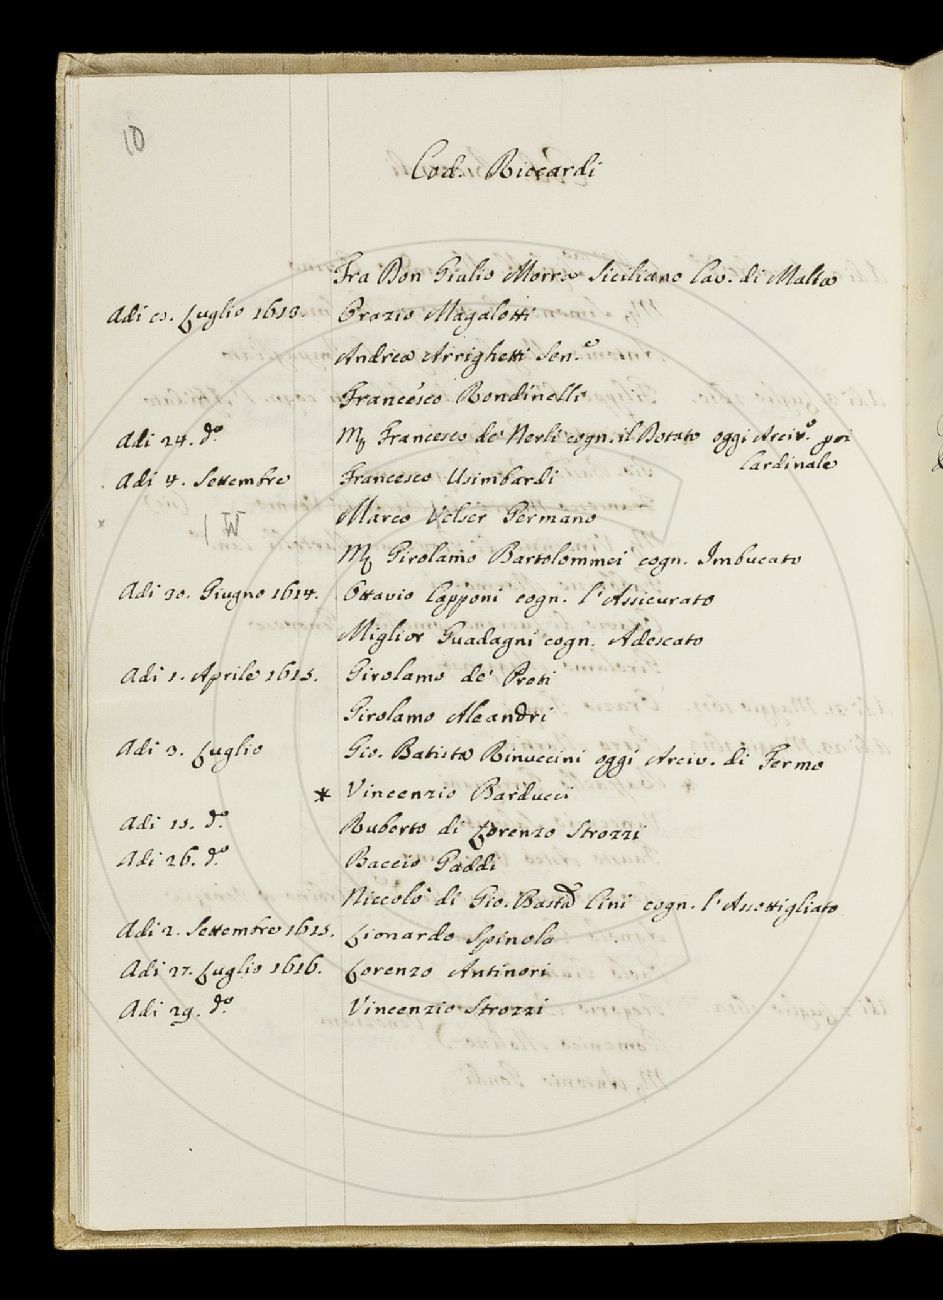 10
Cod. Riccardi
Fra Don Giulio Morra Siciliano Cav. di Malta
Adi Luglio 1613. Orazio Magalotti
Andrea Arrighetti Sen.e
Francesco Rondinelli
Adi 24. do. Mr Francesco de' Nerli cogn. il Dotato oggi Arciv.o poi
Cardinale
Adi 4. Settembre Francesco Usimbardi
Marco Velser Germano
Mr Girolamo Bartolommei cogn. Imbucato
Adi 20. Giugno 1614. Ottavio Capponi cogn. l'Assicurato
Miglior Guadagni cogn. Adescato
Adi 1. Aprile 1615. Girolamo de' Preti
Girolamo Aleandri
Adi 3. Luglio Gio. Batista Rinuccini oggi Arciv. di Fermo
* Vincenzio Barducci
Adi 13. do. Ruberto di Lorenzo Strozzi
Adi 26. do. Baccio Gaddi
Niccolò di Gio. Basta Cini cogn. l'Assottigliato
Adi 2. Settembre 1615. Lionardo Spinola
Adi 27. Luglio 1616. Lorenzo Antinori
Adi 29. do. Vincenzio Strozzi